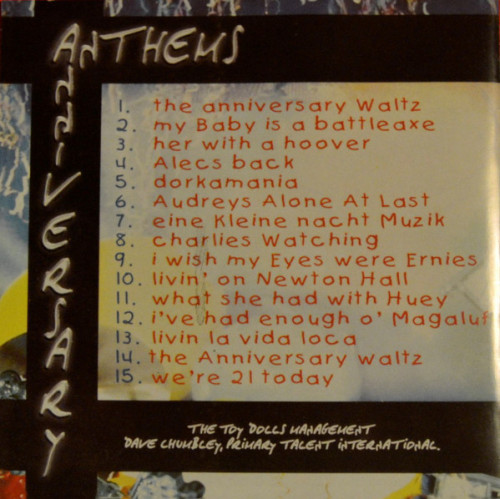 ANTHEMS
ANNIVERSARY
1. the anniversary Waltz
2. my Baby is a battleaxe
3. her with a hoover
4. Alecs back
5. dorkamania
6. Audreys Alone At Last
7. eine Kleine nacht Muzik
8. charlies Watching
9. i wish my Eyes were Ernies
10. livin' on Newton Hall
11. what she had with Huey
12. i've had enough o' Magaluf
13. livin la vida loca
14. the Anniversary waltz
15. we're 21 today
THE TOY DOLLS MANAGEMENT
DAVE CHUMBLEY, PRIMARY TALENT INTERNATIONAL.